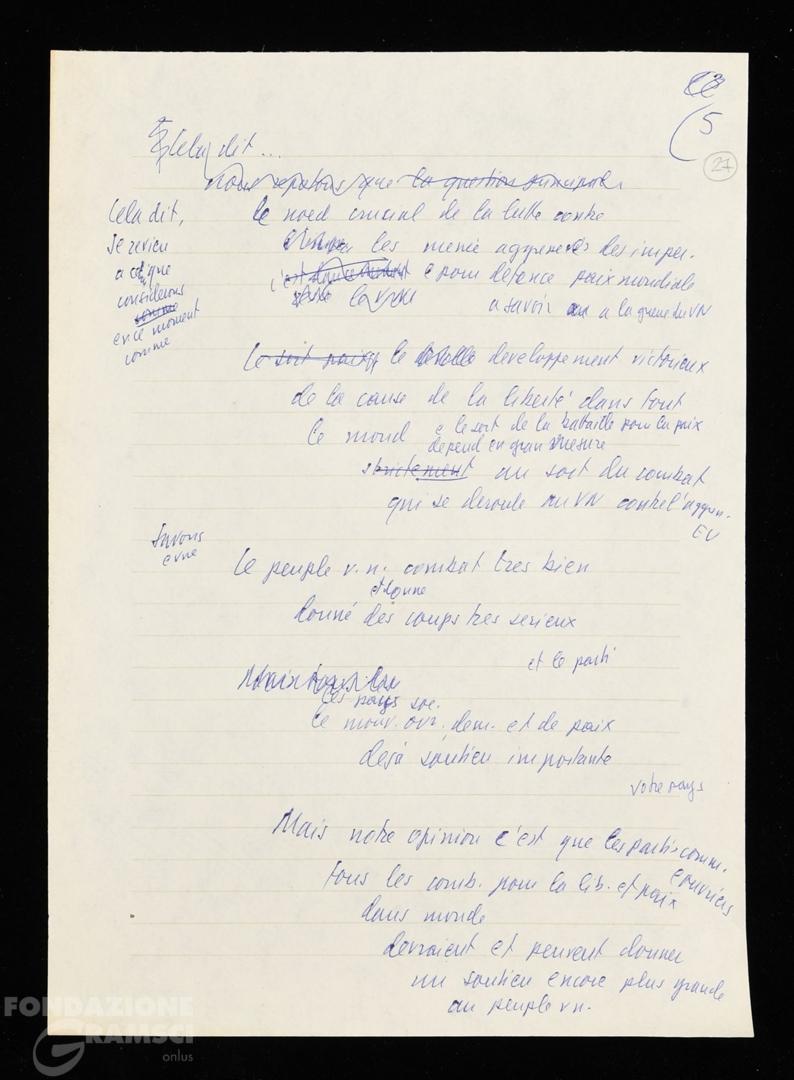 5
27
Cela dit...
nous repetons que la question principale
Cela dit,
je reviens
a ce que
considerons
somme
en ce moment
comme
le noed crucial de la lutte contre
les menée aggressives des imper.
c'est
e pour défence paix mondiale
a savoir a la guerre du VN
le soit le developpement victorieux
de la cause de la liberté dans tout
le mond e le sort de la battaille pour la paix
depend en gran mesure
strictement au sort du combat
qui se deroule au VN contre l'aggres.
EU
Savons
e vne
le peuple v.n. combat tres bien
et donne
donné des coups tres serieux
et le parti
les pays soc.
le mouv. ouv. dem. et de paix
dejà soutien importante
votre pays
Mais notre opinion c'est que les partis comm.
e ouvriers
tous les comb. pour la lib. et paix
dans monde
devraient et peuvent donner
un soutien encore plus grande
au peuple vn.
FONDAZIONE
GRAMSCI
onlus